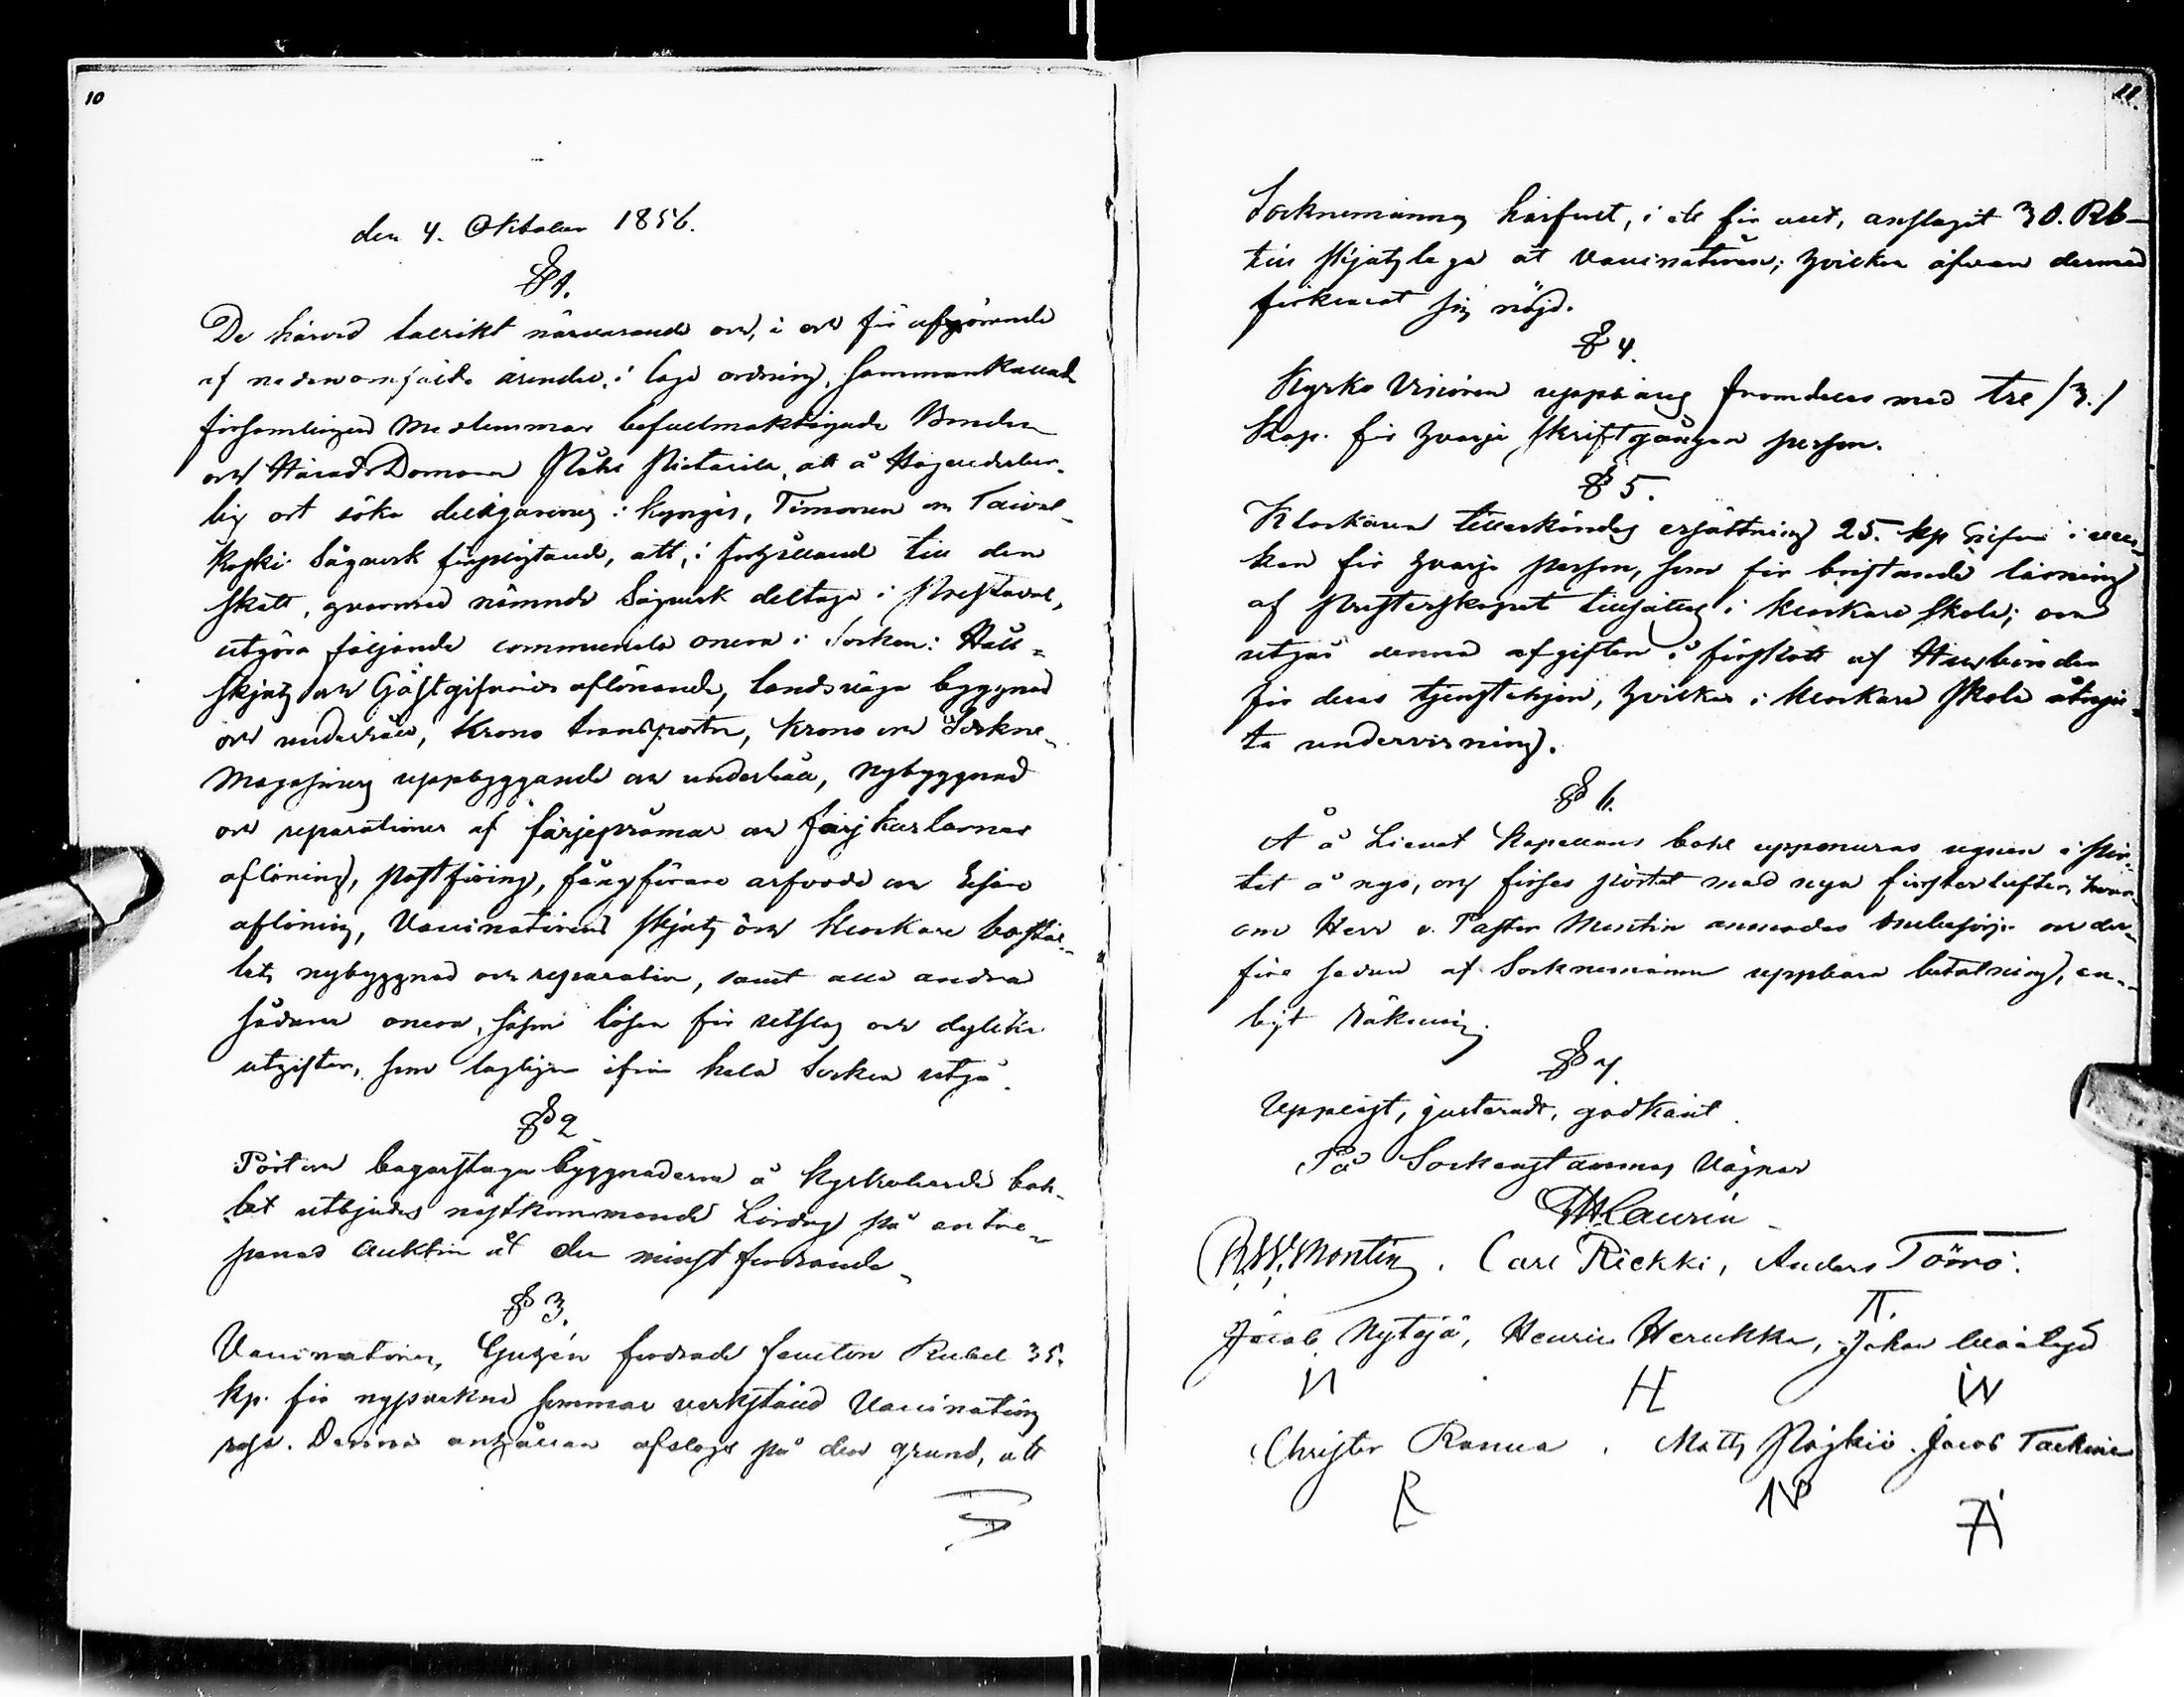 10
den 4. Oktober 1856.
§ 1.
De härvid talrikt närvarande och, i och för afgörande
af nedanomförda ärender, i laga ordning, sammankallade
församlingens medlemmar befullmäktigade Bonden
och HäradsDomaren Påhl Pietarila, att å
ort söka delägarne i Kyngis, Timonen och Taival-
koski Sågverk förpligtande, att, i förhållande till den
skatt, hvarmed nämnde Sågverk deltaga i Prestaval,
utgöra följande communela onera i Socken: Håll-
skjuts och Gästgifveriers aflönande, landsvägs byggnad
och underhåll, Krono transporter, Krono och Sockne-
Magasiners uppbyggande och underhåll, nybyggnad
och reparationer af färjepråmar och färjkarlarnes
aflöning, postföring, fångförare arfvode och
aflöning, Vaccinatörens skjuts och Klockare boställ-
lets nybyggnad och reparation, samt alla andra
sådana onera, såsom lösen för utslag och dylika
utgifter, som lagligen ifrån hela Socken utgå.
§ 2
Pört och bagarstuga byggnaderna å Kyrkoherde bohl-
let utbjudes nästkommande Lördag på entre-
prenad Auktion åt den minst fordrande.
§ 3.
Vaccinatören, fordrade femton Rubel 35.
kp. för nyssvekne sommar verkställd Vaccinations
resa. Denna anhållan afslogs på den grund, att
11.
Socknemännerne härförut, i ett för allt, anslagit 30. Rb
till skjutslega åt Vaccinatören; hvilken äfven dermed
förklarat sig nöjd.
§ 4.
Kyrko Visiören uppbäres framdeles med tre /3./
Kop. för hvarje skriftgången person.
§ 5.
Klockaren tillerkändes ersättning 25. kp silfver i vec-
kan för hvarje person, som för bristande läsning
af Presterskapet tillsättes i Klockare skola; och
utgår denna afgiften i förskott af Husbönder
för deras tjenstehjon, hvilka i Klockare skola åtnju-
ta undervisning.
§ 6.
Å Kapellans bohl uppmuras ugnen i pör-
tet å nyo, och förses pörtet med nya fönsterlufter, hvar-
om Herr v. Pastor Montin anmodas och der-
före sedan af Socknemännen uppbära betalning, en-
ligt räkning.
§ 7.
Uppläst, justeradt, godkänt.
På Sockenstämmans Vägnar
Laurin
Montin, Carl Riekki, Anders Törrö.
T.
Jacob Nytäjä, Henric Herukka, Johan
N H W
Christer Ranua. Matts Jacob
R